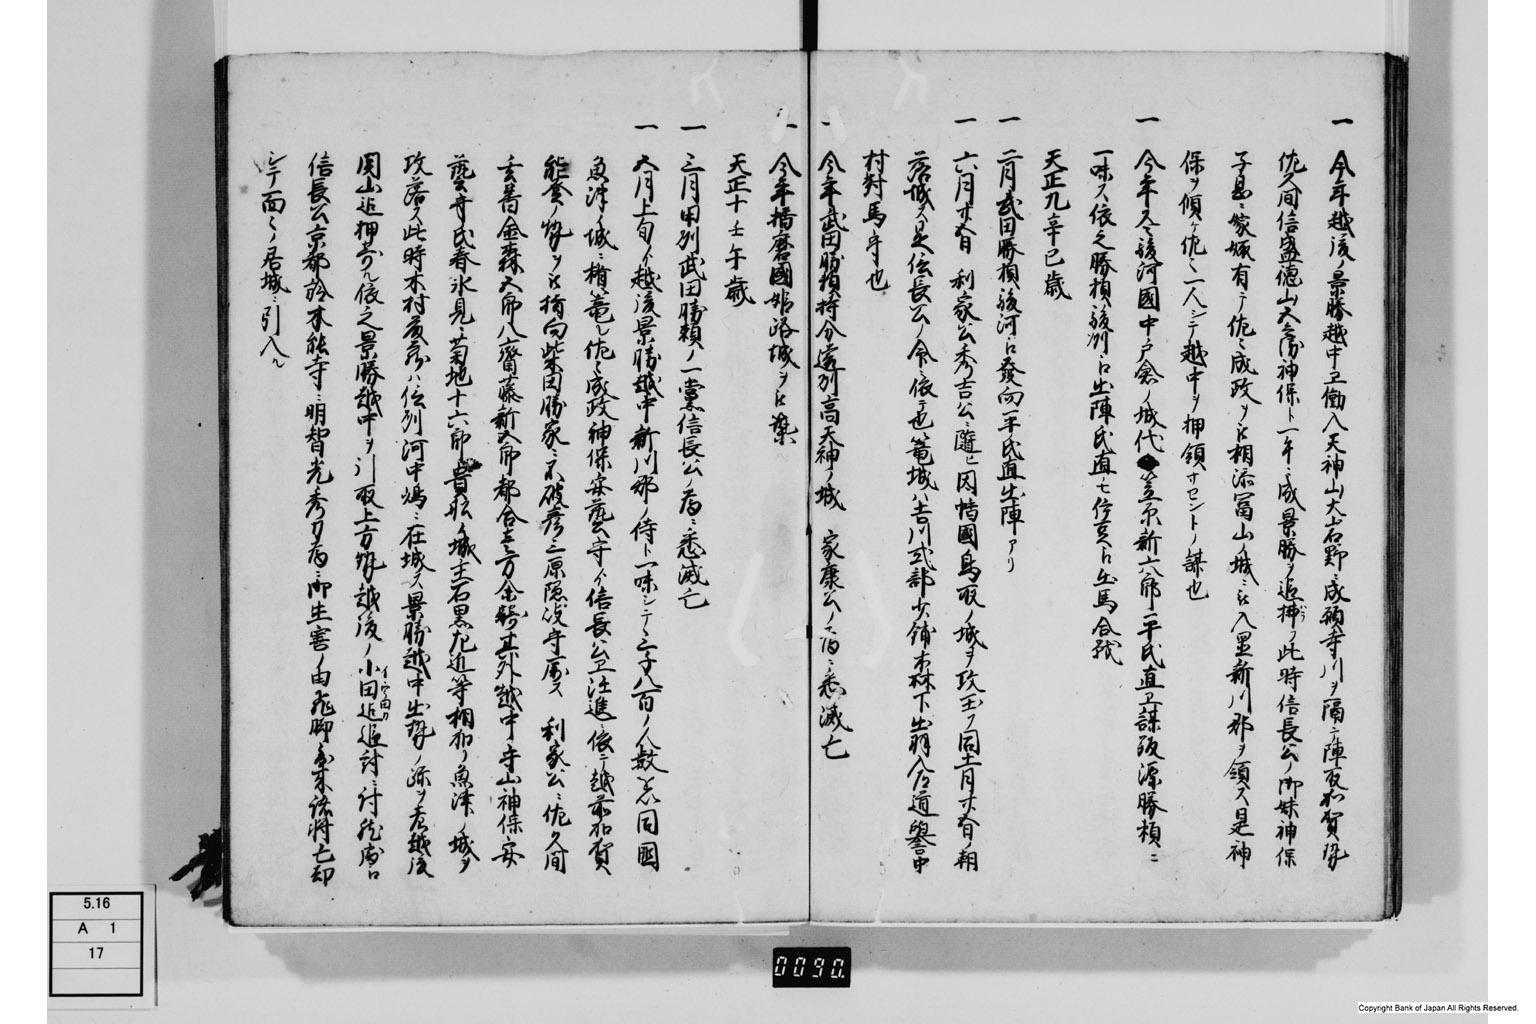 一 今年越後ノ景勝越中エ働入天神山大岩野ニ成願寺川ヲ隔テ陣取加賀勢
佐久間信盛徳山大
神保ト一手ニ成景勝ヲ追拂フ此時信長公ノ御妹神保
子息ニ嫁娵有テ佐々成政ヲ被相添冨山ノ城ニ被入置新川郡ヲ領ス是神
保ヲ傾ケ佐々一人シテ越中ヲ押領サセントノ謀也
一 今年
駿河國中戸倉ノ城代笠原新六郎平氏直エ謀叛源勝頼ニ
一味ス依之勝頼駿州ニ出陣氏直モ伊豆ニ出馬合戦
天正九辛巳歳
一 二月武田勝頼駿河ニ發向平氏直出陣アリ
一 六月廿五日 利家公秀吉公ニ隨ヒ因幡國鳥取ノ城ヲ攻玉フ同十一月廿五日ノ朝
落城ス是信長公ノ命ニ依テ也篭城ハ吉川式部少輔森下出羽入道道誉中
村對馬守也
一 今年武田勝頼持分遠州高天神ノ城 家康公ノ為ニ悉滅亡
一 今年播磨國姫路城ヲ被築
天正十壬午歳
一 三月甲州武田勝頼ノ一黨信長公ノ為ニ悉滅亡
一 六月上旬
越後景勝越中新川郡ノ侍ト一味シテ三千八百ノ人数
同國
魚津ノ城ニ楯篭ル佐々成政神保安藝守
信長公エ注進ニ依テ越前加賀
能登ノ勢ヲ被指向柴田勝家不破彦三原隠岐守属ス 利家公ニ佐久間
玄蕃金森五郎八齋藤新五郎都合
其外越中ノ守山神保安
藝守氏春氷見ノ菊地十六郎貴舩ノ城主石黒左近等相加リ魚津ノ城ヲ
攻落ス此時木村
ハ信州河中嶋ニ在城ス景勝越中出勢ノ跡ヲ
越後
関山近押寄ル依之景勝越中ヲ引取上方勢越後ノ小田近追討ニ付
信長公京都於本能寺ニ明智光秀カ為ニ御生害ノ由飛脚到来諸将亡却
シテ面々ノ居城ニ引入ル
5.16
A 1
17
0090.
Copyright Bank of Japan All Rights Reserved.